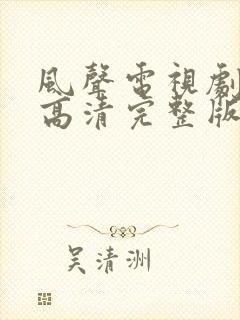 風聲電視劇
高清完整版
吴清洲